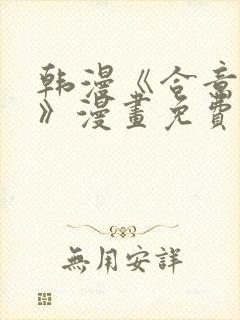 韩漫《合音
》漫畫免費
無用安詳